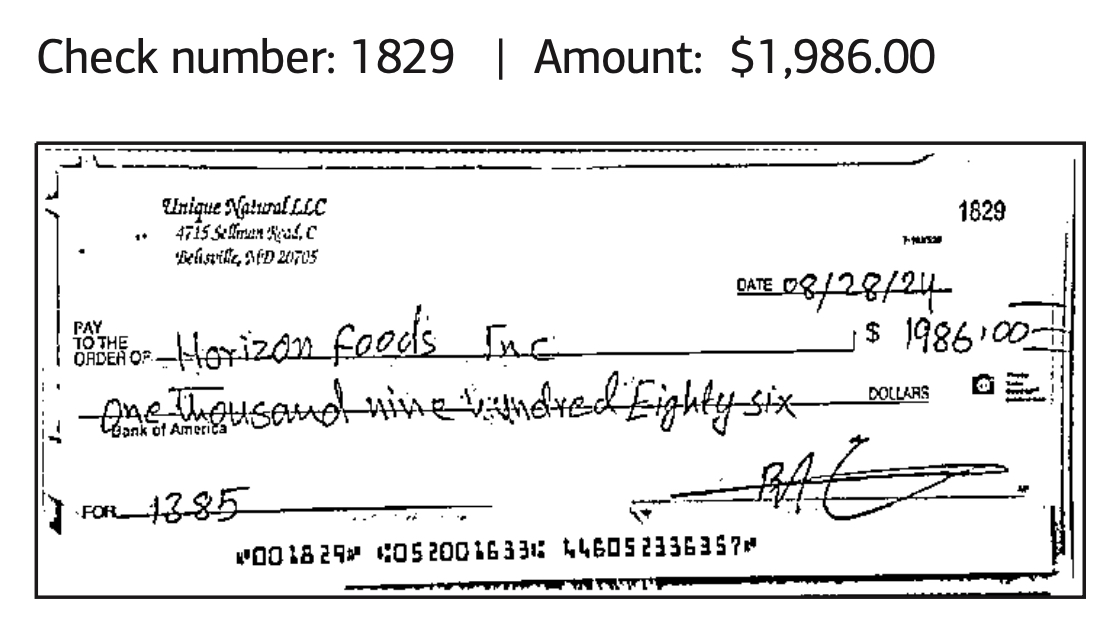 Check number: 1829 | Amount: $1,986.00
Unique Natural LLC
1829
4715 Sellman Road, C
Beltsville, MD 20705
DATE 08/28/24
PAY
TO THE
ORDER OF Horizon foods Inc $ 1986.00
One Thousand nine hundred Eighty six DOLLARS
Bank of America
FOR 1385
⑈001829⑈ ⑆052001633⑆ 446052336357⑈